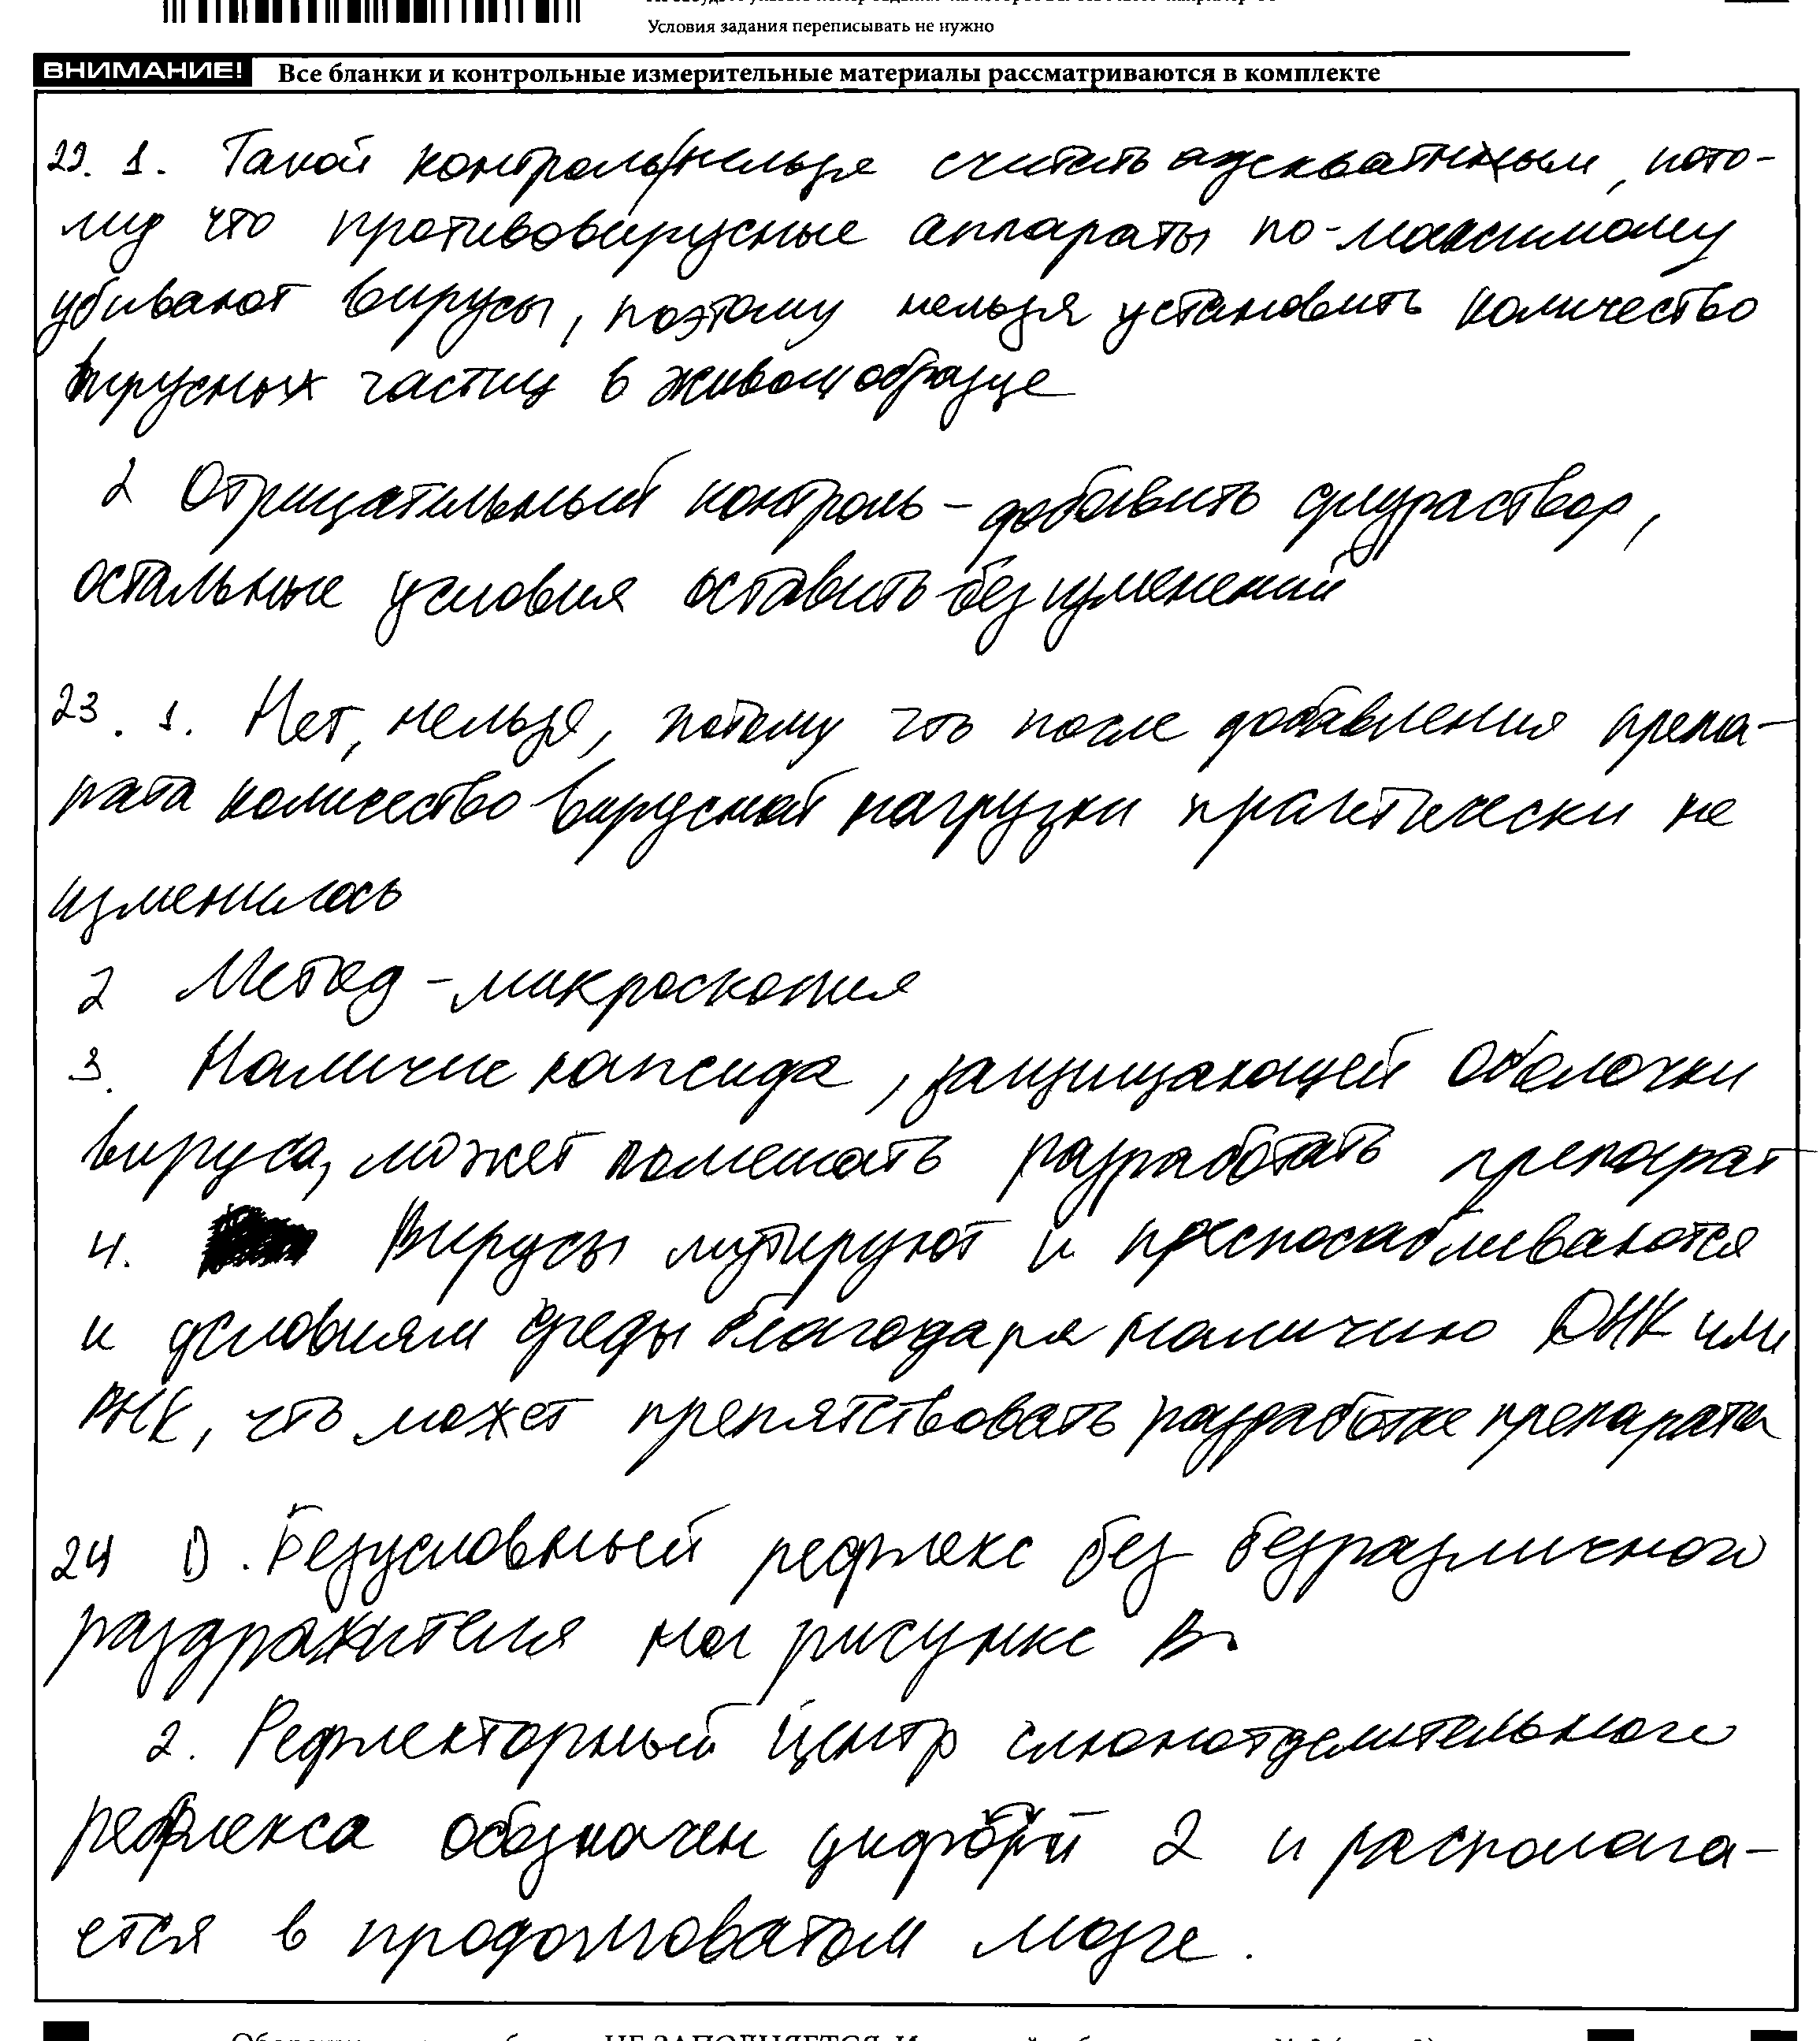 Условия задания переписывать не нужно
ВНИМАНИЕ! Все бланки и контрольные измерительные материалы рассматриваются в комплекте
22. 1. Такой контроль нельзя считать адекватным, пото-
му что противовирусные аппараты по-максимому
убивают вирусы, поэтому нельзя установить количество
вирусных частиц в живом образце
2 Отрицательный контроль - добавить физраствор,
остальные условия оставить без изменений
23. 1. Нет, нельзя, потому что после добавления препа-
рата количество вирусной нагрузки практически не
изменилось
2 Метод - микроскопия
3. Наличие капсида, защищающей оболочки
вируса, может помешать разработать препарат
4. Вирусы мутируют и приспосабливаются
к условиям среды благодаря наличию ДНК или
РНК, что может препятствовать разработке препарата
24 1). Безусловный рефлекс без безразличного
раздражителя на рисунке В.
2. Рефлекторный центр слюноотделительного
рефлекса обозначен цифрой 2 и располага-
ется в продолговатом мозге.